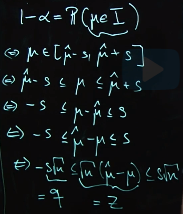 1-α = ℙ(μ∈I)
⇔ μ ∈ [μ̂-s, μ̂+s]
⇔ μ̂-s ≤ μ ≤ μ̂+s
⇔ -s ≤ μ-μ̂ ≤ s
⇔ -s ≤ μ̂-μ ≤ s
⇔ -s√n ≤ √n (μ̂-μ) ≤ s√n
= q = Z